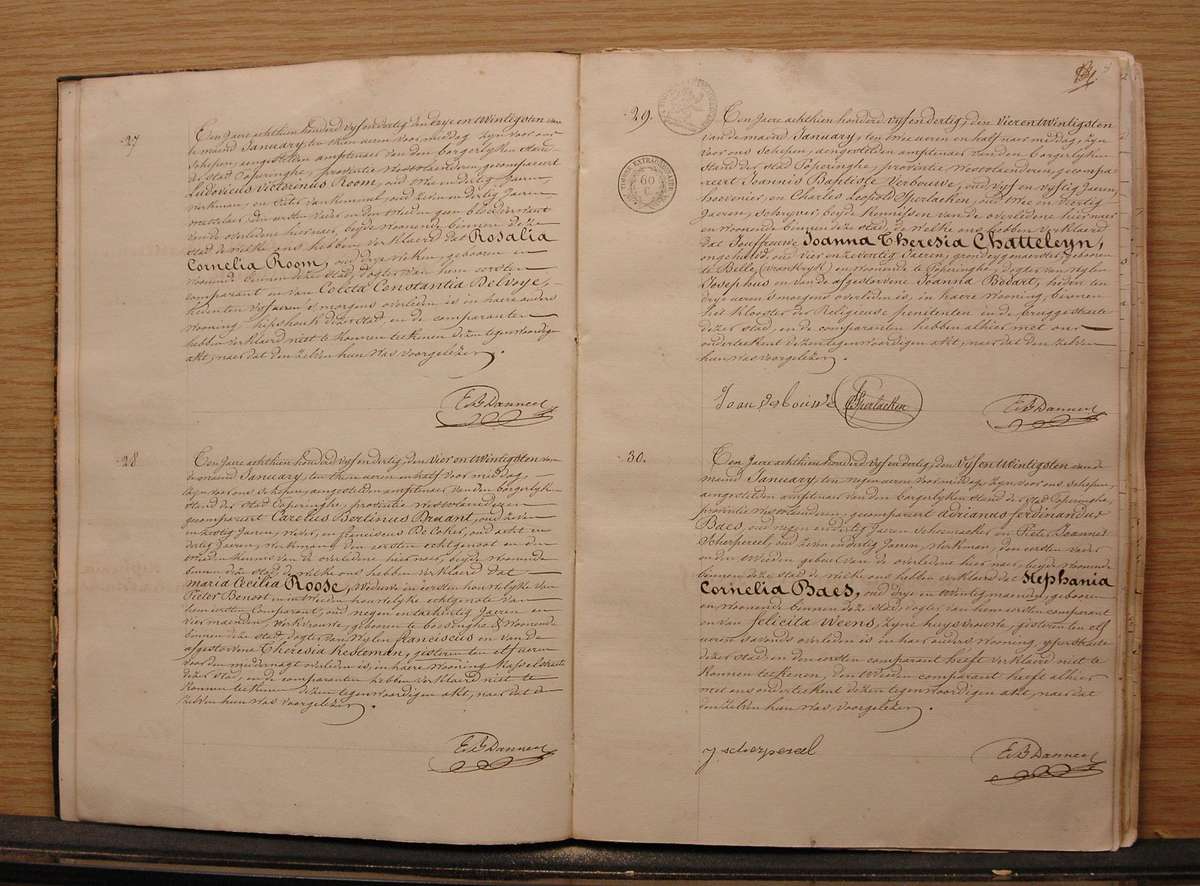 27
Een Jaere achthien honderd vyf en dertig den drye en twintigsten van
de maend January, ten thien ueren voormiddag, zyn voor ons
schepen, aengestelden amptenaer van den borgerlyken stand
der stad Poperinghe, provintie Westvlaenderen, gecompareert
Ludovicus Victorinus Room, oud twee en dertig Jaeren,
werkman, en Pieter van Kemmel, oud zeven en dertig Jaeren
metselaer, den eersten vader en den tweeden geen bloedverwant
van de overledene hiernaer, beyde woonende binnen deze
stad, de welke ons hebben verklaerd dat Rosalia
Cornelia Room, oud drye weken, gebooren en
woonende binnen deze stad, dogter van hem eersten
comparant en van Coleta Constantia Delvoye,
heden ten vyf ueren 's morgens overleden is in haere ouders
wooning, hipshoek dezer stad, en de comparanten
hebben verklaerd niet te konnen teekenen dezen tegenwoordigen
akt, naer dat den zelven hun was voorgelezen.
E. B. Danneel
28
Een Jaere achthien honderd vyf en dertig, den vier en twintigsten van
de maend January, ten thien ueren en half voormiddag,
zyn voor ons schepen, aengestelden amptenaer van den borgerlyken
stand der stad Poperinghe, provintie Westvlaenderen
gecompareert Carolus Bertinus Braant, oud zeven
en zestig Jaeren, wever, en Franciscus De Coker, oud acht en
dertig Jaeren, werkman, den eersten echtgenoot en den
tweeden kennis van de overledene hiernaer, beyde woonende
binnen deze stad, de welke ons hebben verklaerd dat
maria Cecilia Roose, weduwe in eersten houwelyke van
Pieter Benoot en in tweeden houwelyke echtgenote van
hem eersten comparant, oud negen en tachentig Jaeren en
vier maenden, werkvrouwe, geboren te boesinghe, & woonende
binnen deze stad, dogter van wylen Franciscus en van de
afgestorvene Theresia Kesteman, gisteren ten elf ueren
voor den middernagt overleden is, in haere wooning, Kasselstraete
dezer stad, en de comparanten hebben verklaerd niet te
konnen teekenen dezen tegenwoordigen akt, naer dat de
zelven hun was voorgelezen.
E. B. Danneel
29.
Een Jaere achthien honderd vyf en dertig, den vier en twintigsten
van de maend January, ten drie ueren en half naer middag, zyn
voor ons schepen, aengestelden amptenaer van den borgerlyken
stand der stad Poperinghe, provintie Westvlaenderen, gecompa
reert Joannes Baptiste Verbouwe, oud vyf en vyftig Jaeren,
hovenier, en Charles Leopold Sperlaeken, oud twee en veertig
Jaeren, schryver, beyde kennissen van de overledene hier naer
en woonende binnen deze stad, de welke ons hebben verklaerd
dat Jouffrouwe Joanna Theresia Chatteleyn,
ongehuwd, oud vier en zeventig Jaeren, grondeygenaerster, geboren
te Belle (Vrankryk) en woonende te Poperinghe, dogter van wylen
Josephus en van de afgestorvene Joanna Bodart, heden ten
drye ueren 's morgens overleden is, in haere wooning, bewoonende
het klooster der Religieuse penitenten in de bruggestraete
dezer stad, en de comparanten hebben alhier met ons
onderteekent dezen tegenwoordigen akt, naer dat den zelven
hun was voorgelezen.
Jean Verbouwe Sperlaeken E. B. Danneel
30.
Een Jaere achthien honderd vyf en dertig, den vyf en twintigsten van de
maend January, ten negen ueren voor middag, zyn voor ons schepen,
aengestelden amptenaer van den borgerlyken stand der stad Poperinghe,
provintie Westvlaenderen, gecompareert Adrianus ferdinandus
Baes, oud negen en dertig Jaeren, schoemaeker, en Pieter Joannes
Scherpereel, oud zeven en dertig Jaeren, werkman, den eersten vader
en den tweeden gebuer van de overledene hier naer, beyde woonende
binnen deze stad, de welke ons hebben verklaerd dat Stephania
Cornelia Baes, oud drye en twintig maenden, gebooren
en woonende binnen deze stad, dogter van hem eersten comparant
en van felicita Weens, zyne huysvrouwe, gisteren ten elf
ueren 's avonds overleden is in haer ouders wooning yperstraete
dezer stad, en den eersten comparant heeft verklaerd niet te
konnen teekenen, den tweeden comparant heeft alhier
met ons onderteekent dezen tegenwoordigen akt, naer dat
den zelven hun was voorgelezen.
j. scherpereel E. B. Danneel
TIMBRE EXTRAORDINAIRE
60
C.